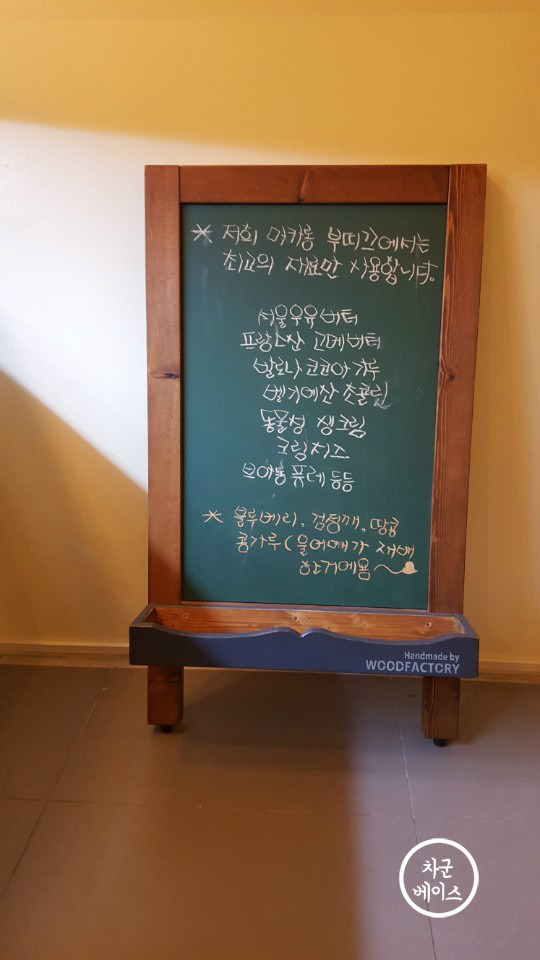 * 저희 마카롱 부띠끄에서는
최고의 재료만 사용합니다.
서울우유버터
프랑스산 고메버터
발로나 코코아 가루
벨기에산 초콜릿
동물성 생크림
크림치즈
브아롱 퓨레 등등
* 블루베리, 검정깨, 땅콩
콩가루 (울어매가 재배
한거에욤
Handmade by
WOODFACTORY
차군
베이스